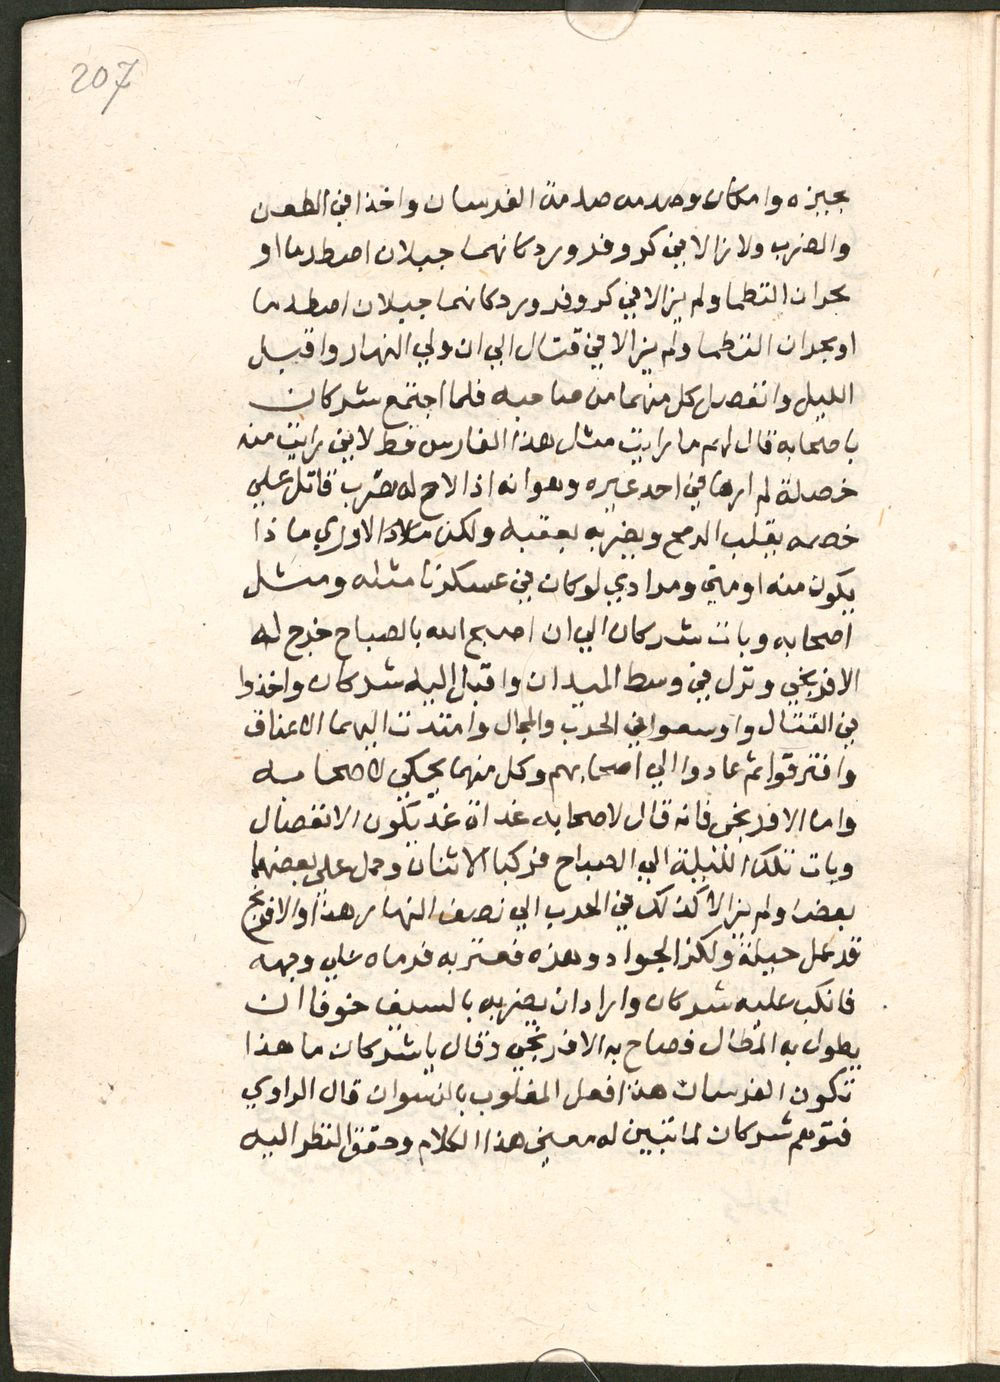 207
بجيزه وامكان وصدمه صدمة الفرسان واخذا في الطعن
والضرب ولا زالا في كر وفر ورد كانهما جبلان اصطدما او
بحران التطما ولم يزالا في كر وفر ورد كانهما جبلان اصطدما
او بحران التطما ولم يزالا في قتال الي ان ولي النهار واقبل
الليل وانفصل كل منهما من صاحبه فلما اجتمع شركان
باصحابه قال لهم ما رايت مثل هذا الفارس قط لاني رايت منه
خصلة لم ارها في احد غيره وهو انه اذا لاح له ضرب قاتل علي
خصمه يقلب الرمح ويضربه بعقبه ولكن ما ادري ماذا
يكون منه او مني ومرادي لو كان في عسكرنا مثله ومثل
اصحابه وبات شركان الي ان اصبح الله بالصباح خرج له
الافرنجي ونزل في وسط الميدان واقبل اليه شركان واخذوا
في القتال واوسعوا في الحرب والمجال وامتدت اليهما الاعناق
وافترقوا ثم عادوا الي اصحابهم وكل منهما يحكي لاصحابه
واما الافرنجي فانه قال لاصحابه غداة غد يكون الانفصال
وبات تلك الليلة الي الصباح فركبا الاثنان وحمل علي بعضهما
بعض ولم يزالا كذلك في الحرب الي نصف النهار هذا والافرنجي
قد عمل حيلة ولكز الجواد وهزه فعتر به فرماه علي وجهه
فانكب عليه شركان واراد ان يضربه بالسيف خوفا ان
يطول به المطال فصاح به الافرنجي وقال يا شركان ما هذا
تكون الفرسان هذا فعل المغلوب بالنسوان قال الراوي
فتوهم شركان لما تبين له معني هذا الكلام وحقق النظر اليه